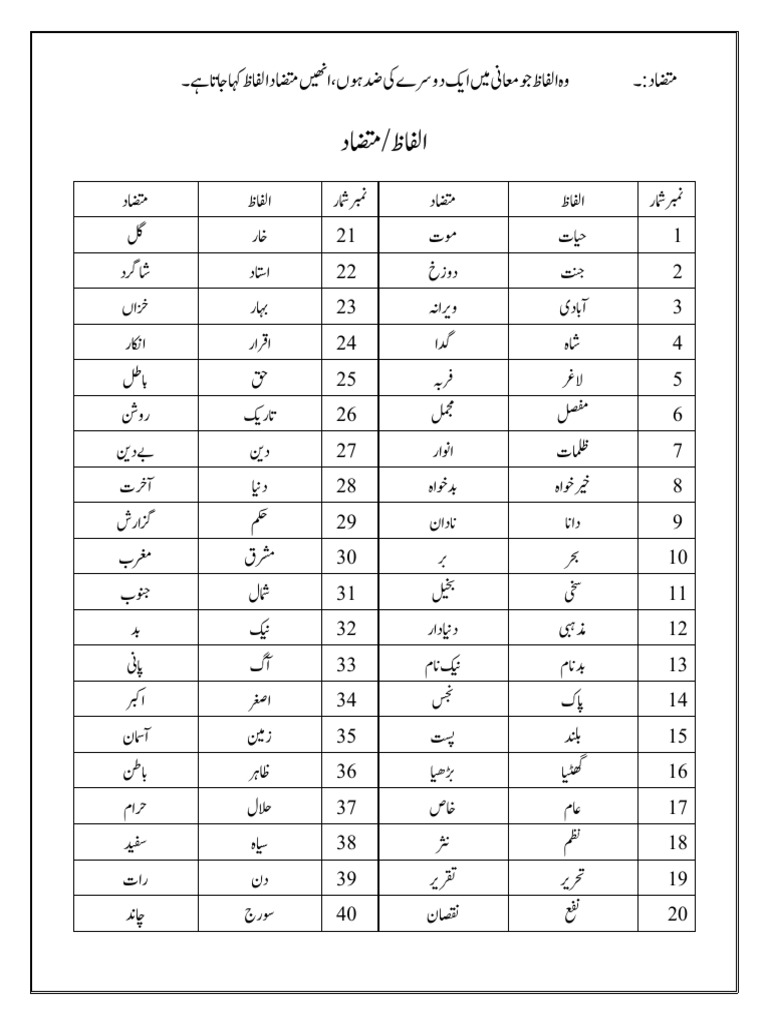 متضاد:۔ وہ الفاظ جو معانی میں ایک دوسرے کی ضد ہوں، انھیں متضاد الفاظ کہا جاتا ہے۔
الفاظ/متضاد
نمبر شمار الفاظ متضاد نمبر شمار الفاظ متضاد
1 حیات موت 21 خار گل
2 جنت دوزخ 22 استاد شاگرد
3 آبادی ویرانہ 23 بہار خزاں
4 شاہ گدا 24 اقرار انکار
5 لاغر فربہ 25 حق باطل
6 مفصل مجمل 26 تاریک روشن
7 ظلمات انوار 27 دین بے دین
8 خیر خواہ بدخواہ 28 دنیا آخرت
9 دانا نادان 29 حکم گزارش
10 بحر بر 30 مشرق مغرب
11 سخی بخیل 31 شمال جنوب
12 مذہبی دنیادار 32 نیک بد
13 بدنام نیک نام 33 آگ پانی
14 پاک نجس 34 اصغر اکبر
15 بلند پست 35 زمین آسمان
16 گھٹیا بڑھیا 36 ظاہر باطن
17 عام خاص 37 حلال حرام
18 نظم نثر 38 سیاہ سفید
19 تحریر تقریر 39 دن رات
20 نفع نقصان 40 سورج چاند